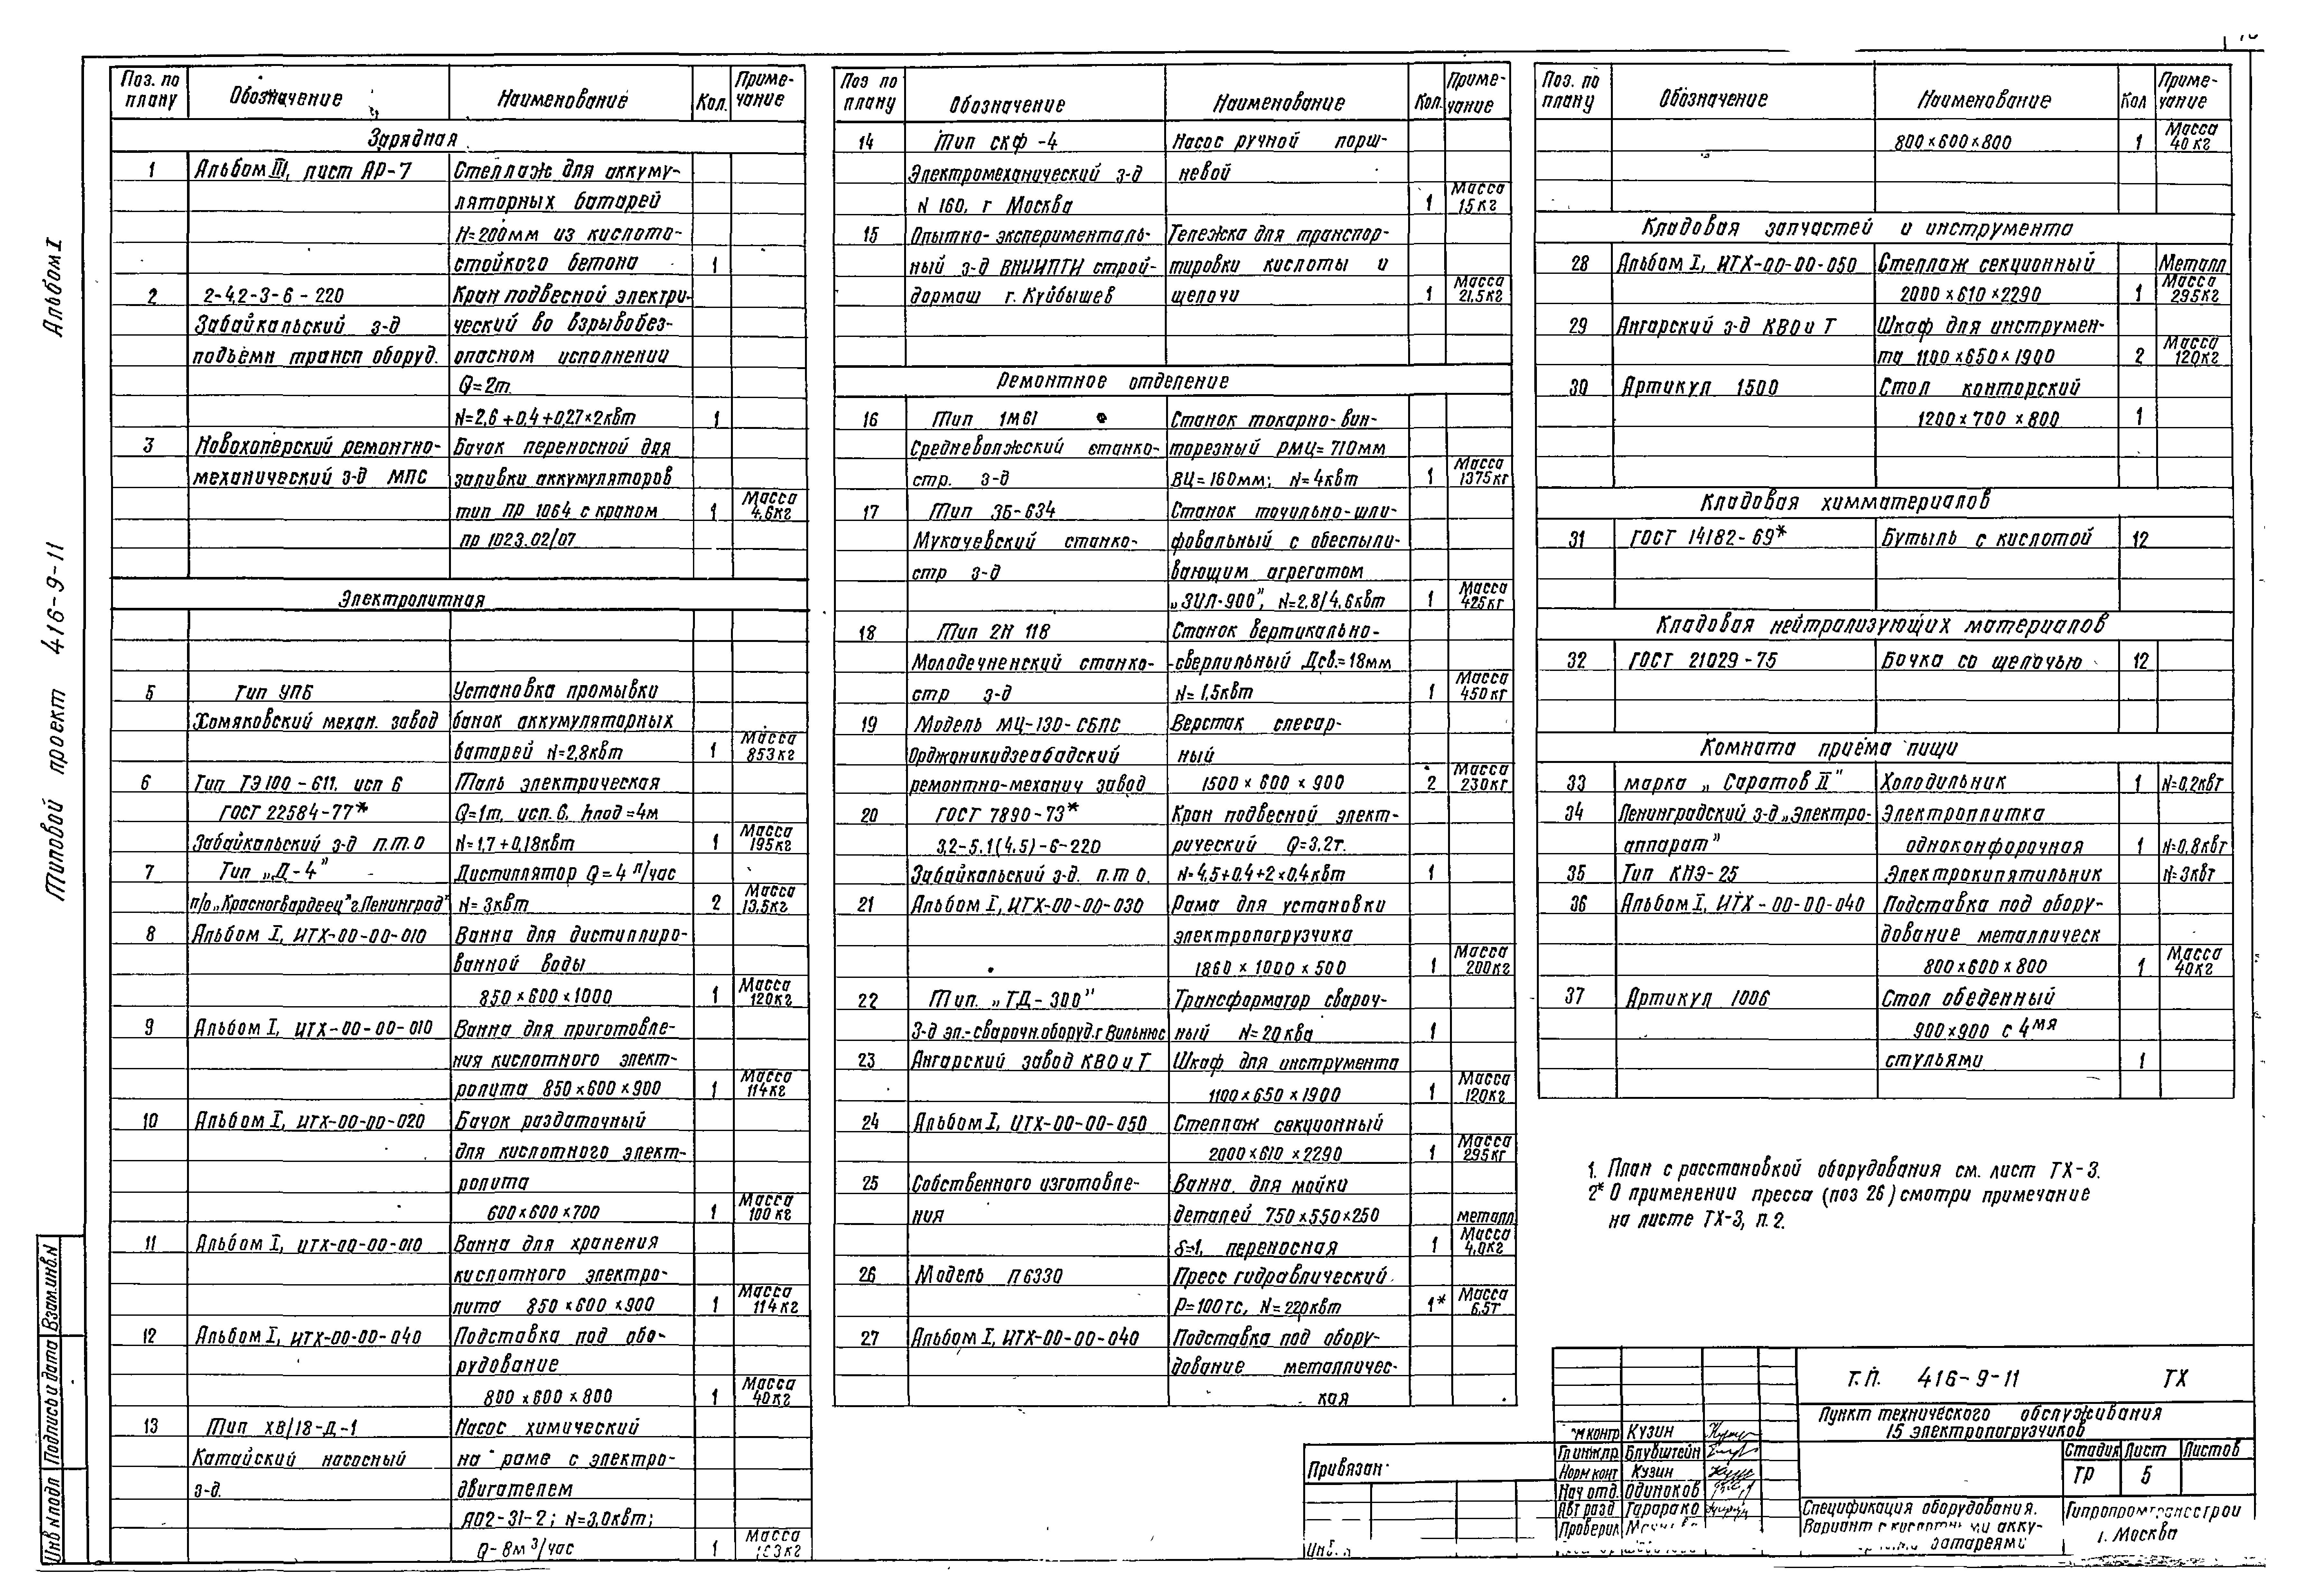 Альбом I
Типовой проект 416-9-11
Взам.инв.N
Подпись и дата
Инв N подл
Поз. по плану Обозначение Наименование Кол. Примечание
Зарядная
1 Альбом III, лист АР-7 Стеллаж для аккуму-
ляторных батарей
H=200мм из кислото-
стойкого бетона 1
2 2-4,2-3-6-220 Кран подвесной электри-
Забайкальский з-д ческий во взрывобез-
подъёмн трансп оборуд. опасном исполнении
Q=2т.
N=2,6+0,4+0,27×2квт 1
3 Новохоперский ремонтно- Бачок переносной для
механический з-д МПС заливки аккумуляторов
тип ПР 1064 с краном 1 Масса 4,6кг
пр 1023.02/07
Электролитная
5 Тип УПБ Установка промывки
Хомяковский механ. завод банок аккумуляторных
батарей N=2,8квт 1 Масса 853кг
6 Тип ТЭ100-611, исп 6 Таль электрическая
ГОСТ 22584-77* Q=1т, исп.6, hпод=4м
Забайкальский з-д п.т.о N=1,7+0,18квт 1 Масса 195кг
7 Тип „Д-4" Дистиллятор Q=4 л/час
п/о „Красногвардеец" г.Ленинград" N=3квт 2 Масса 13,5кг
8 Альбом I, ИТХ-00-00-010 Ванна для дистиллиро-
ванной воды
850×600×1000 1 Масса 120кг
9 Альбом I, ИТХ-00-00-010 Ванна для приготовле-
ния кислотного элект-
ролита 850×600×900 1 Масса 114кг
10 Альбом I, ИТХ-00-00-020 Бачок раздаточный
для кислотного элект-
ролита
600×600×700 1 Масса 100кг
11 Альбом I, ИТХ-00-00-010 Ванна для хранения
кислотного электро-
лита 850×600×900 1 Масса 114кг
12 Альбом I, ИТХ-00-00-040 Подставка под обо-
рудование
800×600×800 1 Масса 40кг
13 Тип Х8/18-Д-1 Насос химический
Катайский насосный на раме с электро-
з-д. двигателем
АО2-31-2; N=3,0квт;
Q-8м³/час 1 Масса
Поз по плану Обозначение Наименование Кол. Примечание
14 Тип СКФ-4 Насос ручной порш-
Электромеханический з-д невой
N 160, г Москва 1 Масса 15кг
15 Опытно-эксперименталь- Тележка для транспор-
ный з-д ВНИИПТИ строй- тировки кислоты и
дормаш г. Куйбышев щелочи 1 Масса 21,5кг
Ремонтное отделение
16 Тип 1М61 Станок токарно-вин-
Средневолжский станко- торезный РМЦ=710мм
стр. з-д ВЦ=160мм; N=4квт 1 Масса 1375кг
17 Тип 3Б-634 Станок точильно-шли-
Мукачевский станко- фовальный с обеспыли-
стр з-д вающим агрегатом
„ЗИЛ-900", N=2,8/4,6квт 1 Масса 425кг
18 Тип 2Н 118 Станок вертикально-
Молодечненский станко- -сверлильный Дсв.=18мм
стр з-д N=1,5квт 1 Масса 450кг
19 Модель МЦ-130-СБПС Верстак слесар-
Орджоникидзеабадский ный
ремонтно-механич завод 1500×600×900 2 Масса 230кг
20 ГОСТ 7890-73* Кран подвесной элект-
3,2-5,1(4,5)-6-220 рический Q=3,2т.
Забайкальский з-д. п.т о. N=4,5+0,4+2×0,4квт 1
21 Альбом I, ИТХ-00-00-030 Рама для установки
электропогрузчика
1860×1000×500 1 Масса 200кг
22 Тип. „ТД-300" Трансформатор свароч-
З-д эл.-сварочн.оборуд.г Вильнюс ный N=20ква 1
23 Ангарский завод КВО и Т Шкаф для инструмента
1100×650×1900 1 Масса 120кг
24 Альбом I, ИТХ-00-00-050 Стеллаж секционный
2000×610×2290 1 Масса 295кг
25 Собственного изготовле- Ванна для мойки
ния деталей 750×550×250 металл
δ=1, переносная 1 Масса 4,0кг
26 Модель П6330 Пресс гидравлический
P=100тс, N=220квт 1* Масса 6,5т
27 Альбом I, ИТХ-00-00-040 Подставка под обору-
дование металличес-
кая
Поз. по плану Обозначение Наименование Кол Примечание
800×600×800 1 Масса 40кг
Кладовая запчастей и инструмента
28 Альбом I, ИТХ-00-00-050 Стеллаж секционный Металл
2000×610×2290 1 Масса 295кг
29 Ангарский з-д КВО и Т Шкаф для инструмен-
та 1100×650×1900 2 Масса 120кг
30 Артикул 1500 Стол конторский
1200×700×800 1
Кладовая химматериалов
31 ГОСТ 14182-69* Бутыль с кислотой 12
Кладовая нейтрализующих материалов
32 ГОСТ 21029-75 Бочка со щелочью 12
Комната приёма пищи
33 марка „Саратов II" Холодильник 1 N=0,2квт
34 Ленинградский з-д „Электро- Электроплитка
аппарат" одноконфорочная 1 N=0,8квт
35 Тип КНЭ-25 Электрокипятильник N=3квт
36 Альбом I, ИТХ-00-00-040 Подставка под обору-
дование металлическ
800×600×800 1 Масса 40кг
37 Артикул 1006 Стол обеденный
900×900 с 4мя
стульями 1
1. План с расстановкой оборудования см. лист ТХ-3.
2* О применении пресса (поз 26) смотри примечание
на листе ТХ-3, п.2.
Привязан:
Т.П. 416-9-11 ТХ
Пункт технического обслуживания
15 электропогрузчиков
контр Кузин
Гл инж.пр Блувштейн
Норм конт Кузин
Нач отд. Одиноков
Авт разд Тарарако
Проверил
Стадия Лист Листов
ТР 5
Спецификация оборудования.
Вариант с кислотными акку-
батареями
Гипропромтрансстрой
г. Москва